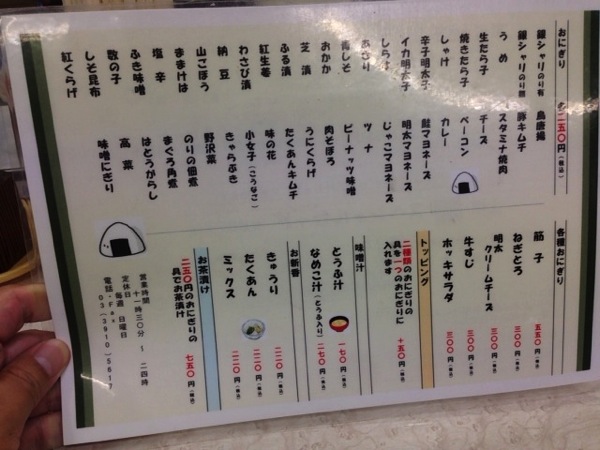 おにぎり
各二五〇円(税込)
銀シャリのり有
銀シャリのり無
うめ
生たら子
焼きたら子
しゃけ
辛子明太子
イカ明太子
しらす
あさり
青しそ
おかか
芝漬
ふる漬
紅生姜
わさび漬
納豆
山ごぼう
ままけは
塩辛
ふき味噌
数の子
しそ昆布
紅くらげ
鳥唐揚
豚キムチ
スタミナ焼肉
チーズ
ベーコン
カレー
鮭マヨネーズ
明太マヨネーズ
じゃこマヨネーズ
ツナ
ピーナッツ味噌
肉そぼろ
うにくらげ
たくあんキムチ
味の花
小女子(こうなご)
きゃらぶき
野沢菜
のりの佃煮
まぐろ角煮
はとうがらし
高菜
味噌にぎり
各種おにぎり
筋子 五五〇円(税込)
ねぎとろ 三〇〇円(税込)
明太クリームチーズ 三〇〇円(税込)
牛すじ 三〇〇円(税込)
ホッキサラダ 三〇〇円(税込)
トッピング
二種類のおにぎりの
具を一つのおにぎりに
入れます +五〇円(税込)
味噌汁
とうふ汁 一七〇円(税込)
なめこ汁(とうふ入り) 二七〇円(税込)
お新香
きゅうり 二二〇円(税込)
たくあん 二二〇円(税込)
ミックス 二二〇円(税込)
お茶漬け
二五〇円のおにぎりの
具でお茶漬け 七五〇円(税込)
営業時間 十一時三〇分~二四時
定休日 毎週 日曜日
電話・Fax
03(3910)5617